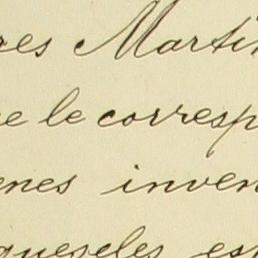 res Martin
e le corresp
enes inven
queseles es